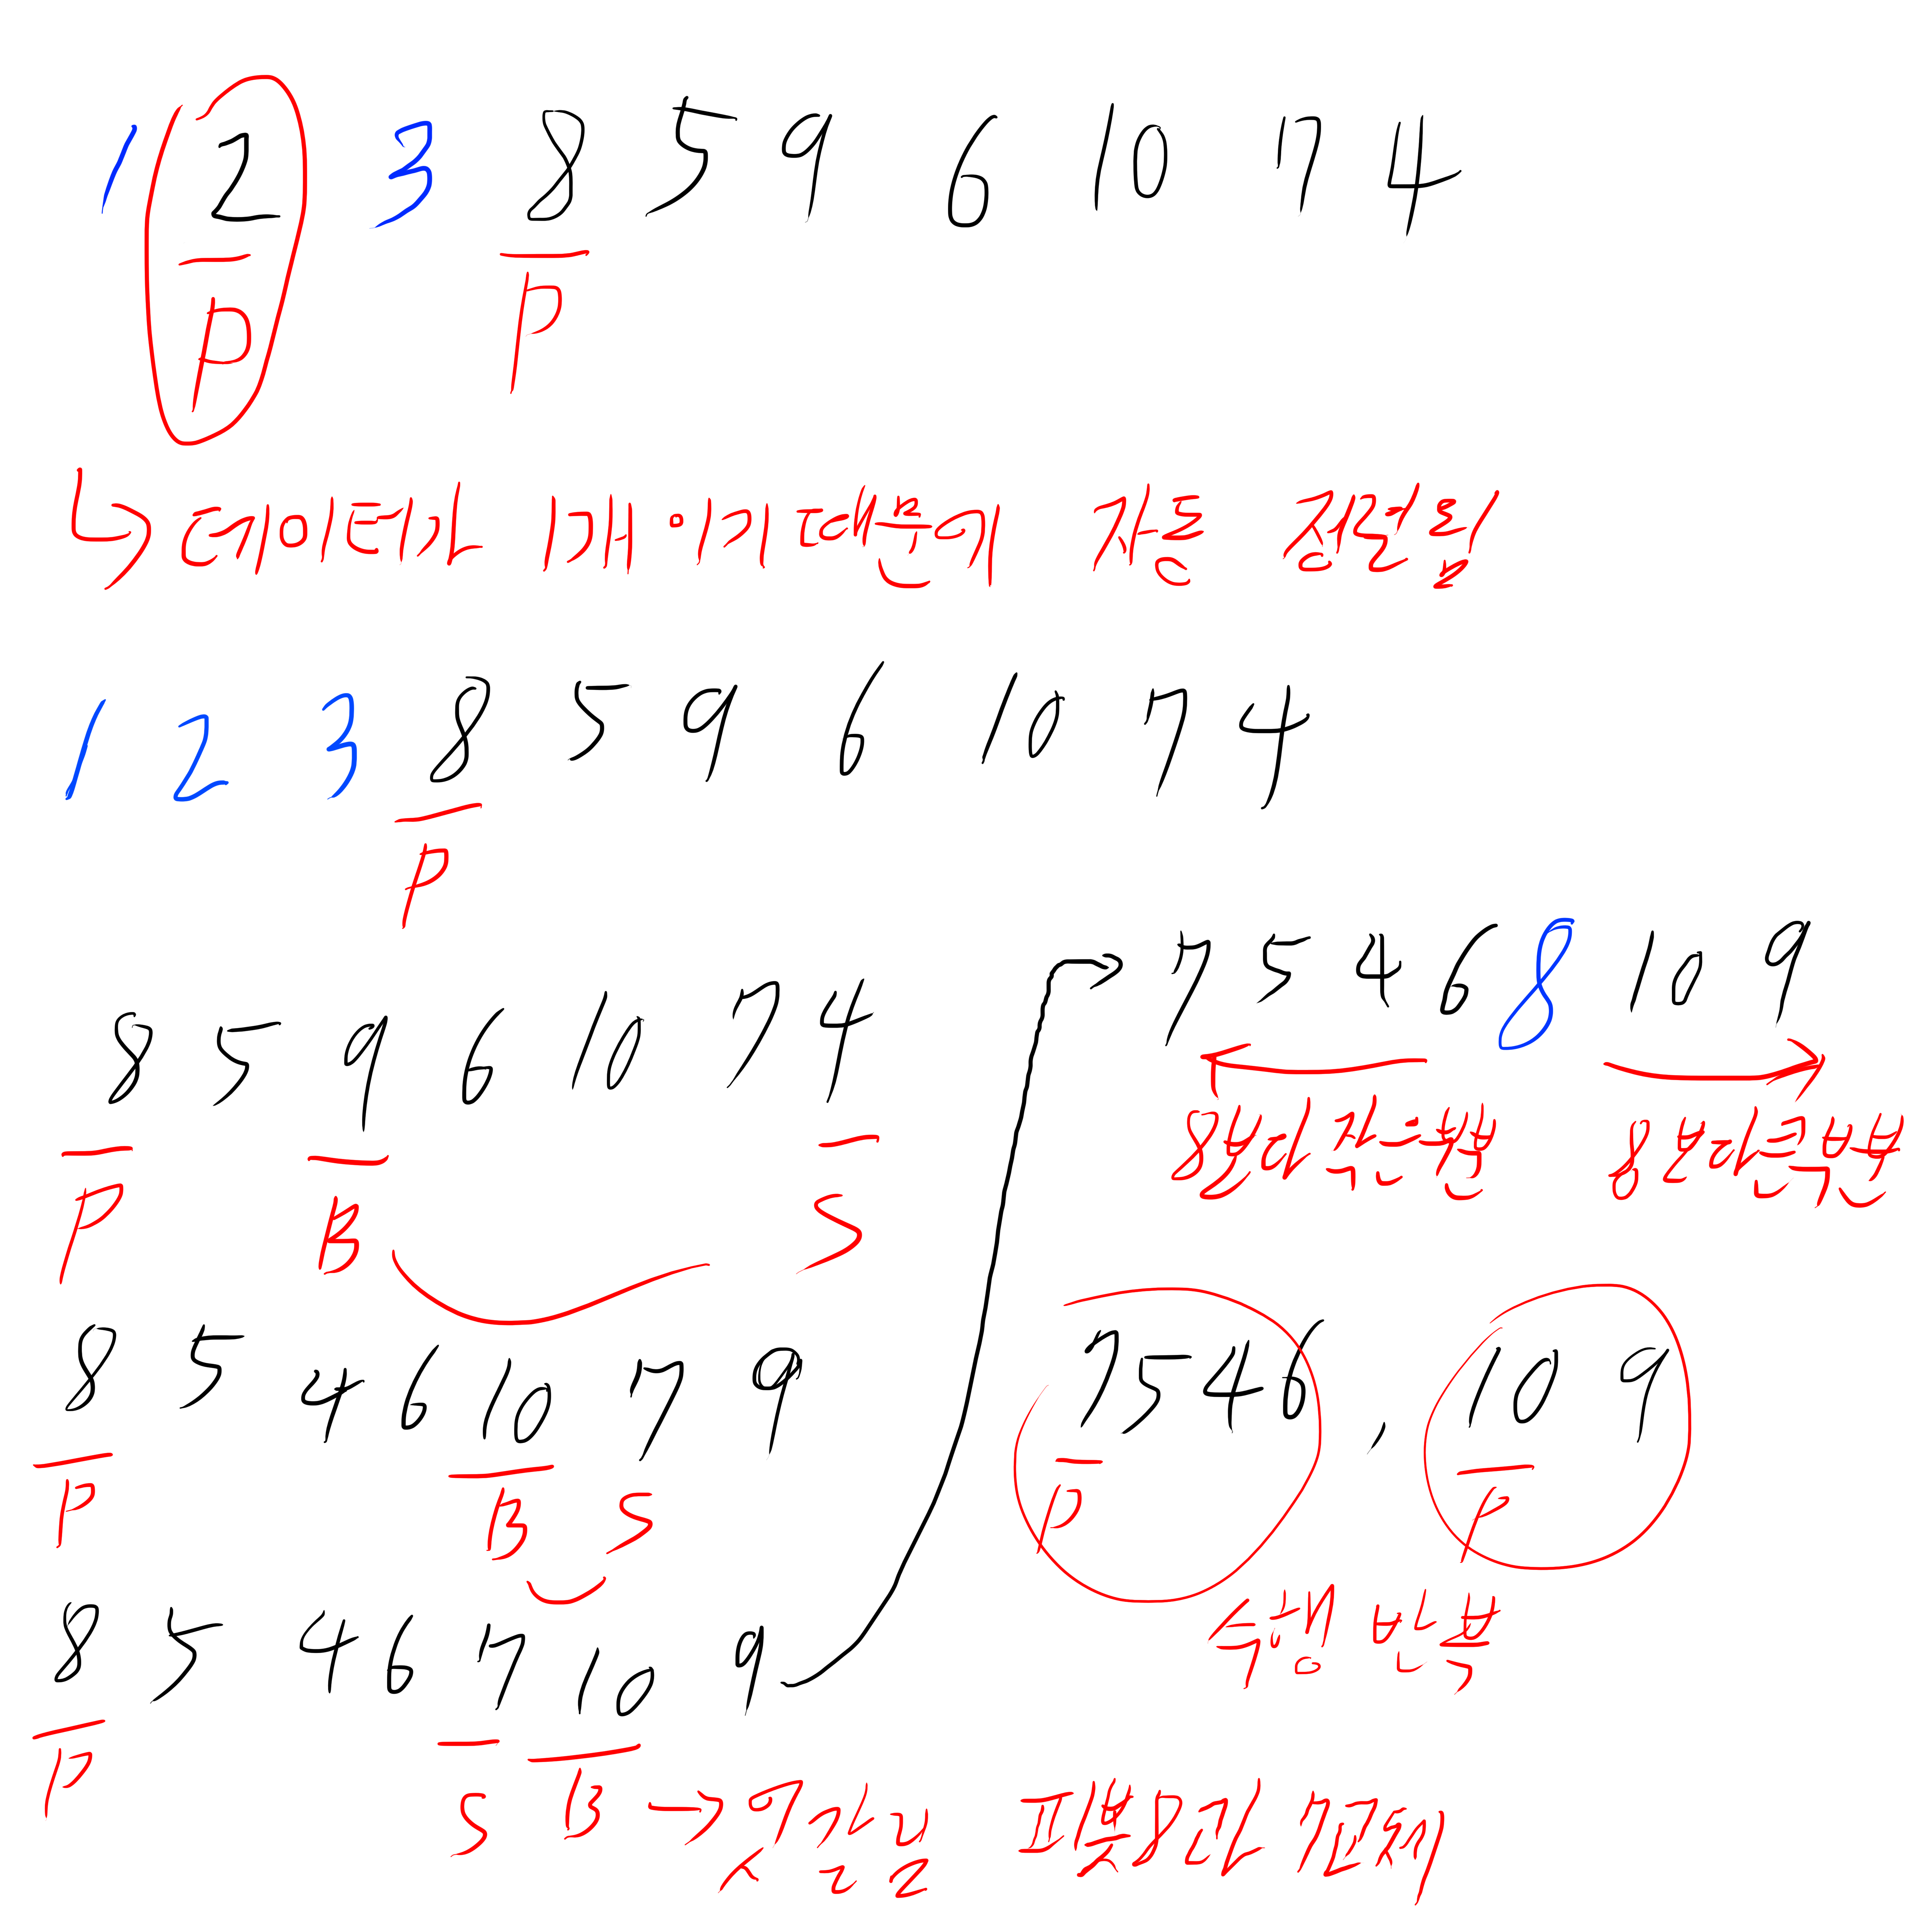 1 2 3 8 5 9 6 10 7 4
P P
데이터가 하나이기때문에 자동 정렬됨
1 2 3 8 5 9 6 10 7 4
P
8 5 9 6 10 7 4
P B S
8 5 4 6 10 7 9
P B S
8 5 4 6 7 10 9
P S B → 엇갈림 피봇이랑 교체
7 5 4 6 8 10 9
8보다 작은부분 8보다 큰부분
7 5 4 6 , 10 9
P P
수행 반복